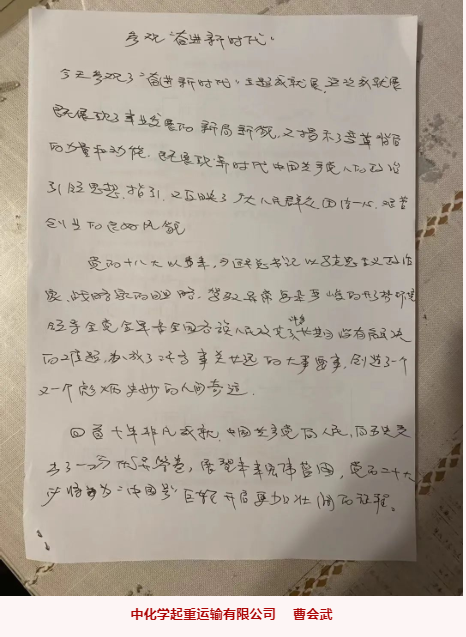 参观“奋进新时代”
今天参观了“奋进新时代”主题成就展，这次成就展
既展现了事业发展的新局新貌，又揭示了变革背后
的力量和动能，既展现新时代中国共产党人的政治
引领思想指引，又反映了广大人民群众团结一心，
创造的良好风貌
党的十八大以来，习近平总书记以马克思主义政治
家、战略家的
领导全党全军全国各族人民攻克了许多长期没有解决
的难题，办成了许多事关长远的大事要事，创造了一个
又一个彪炳史册的人间奇迹。
回首十年非凡成就，中国共产党与人民，向历史交
出了一份优异答卷，展望未来宏伟蓝图，党的二十大
必将为“中国号”巨轮开启更加壮阔的征程。
中化学起重运输有限公司 曹会武